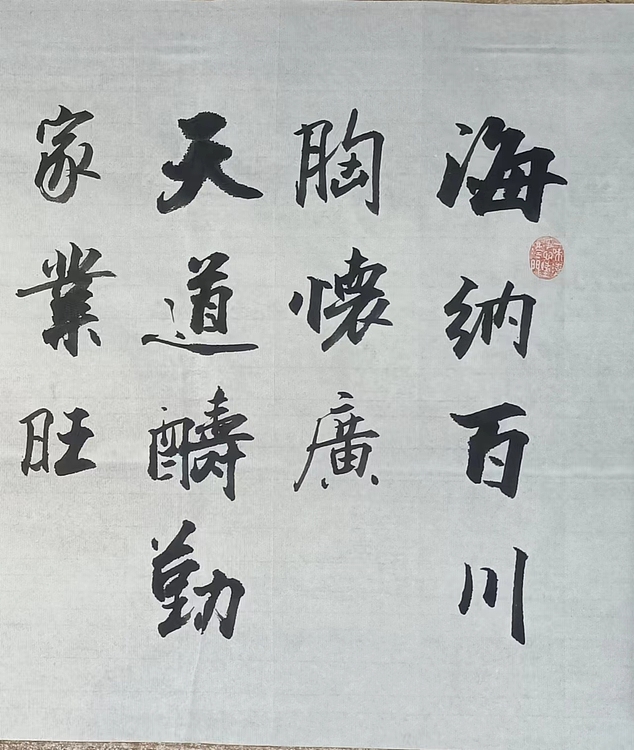 海纳百川
胸懷廣
天道疇勤
家業旺